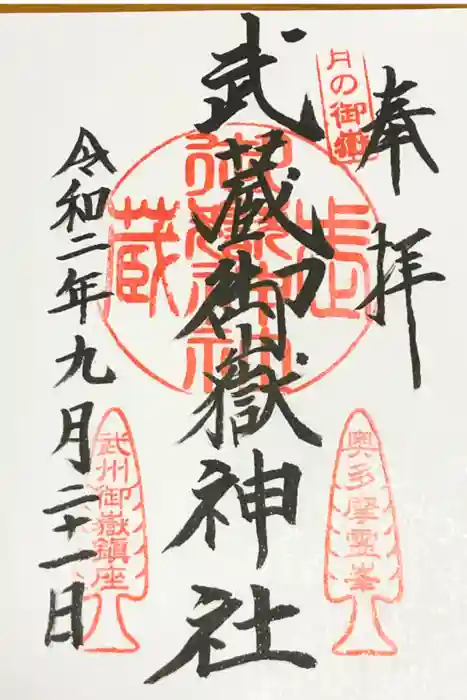 奉拝
月の御嶽
奥多摩霊峯
武蔵御嶽神社
武蔵
御嶽神社
令和二年九月二十一日
武州御嶽鎮座